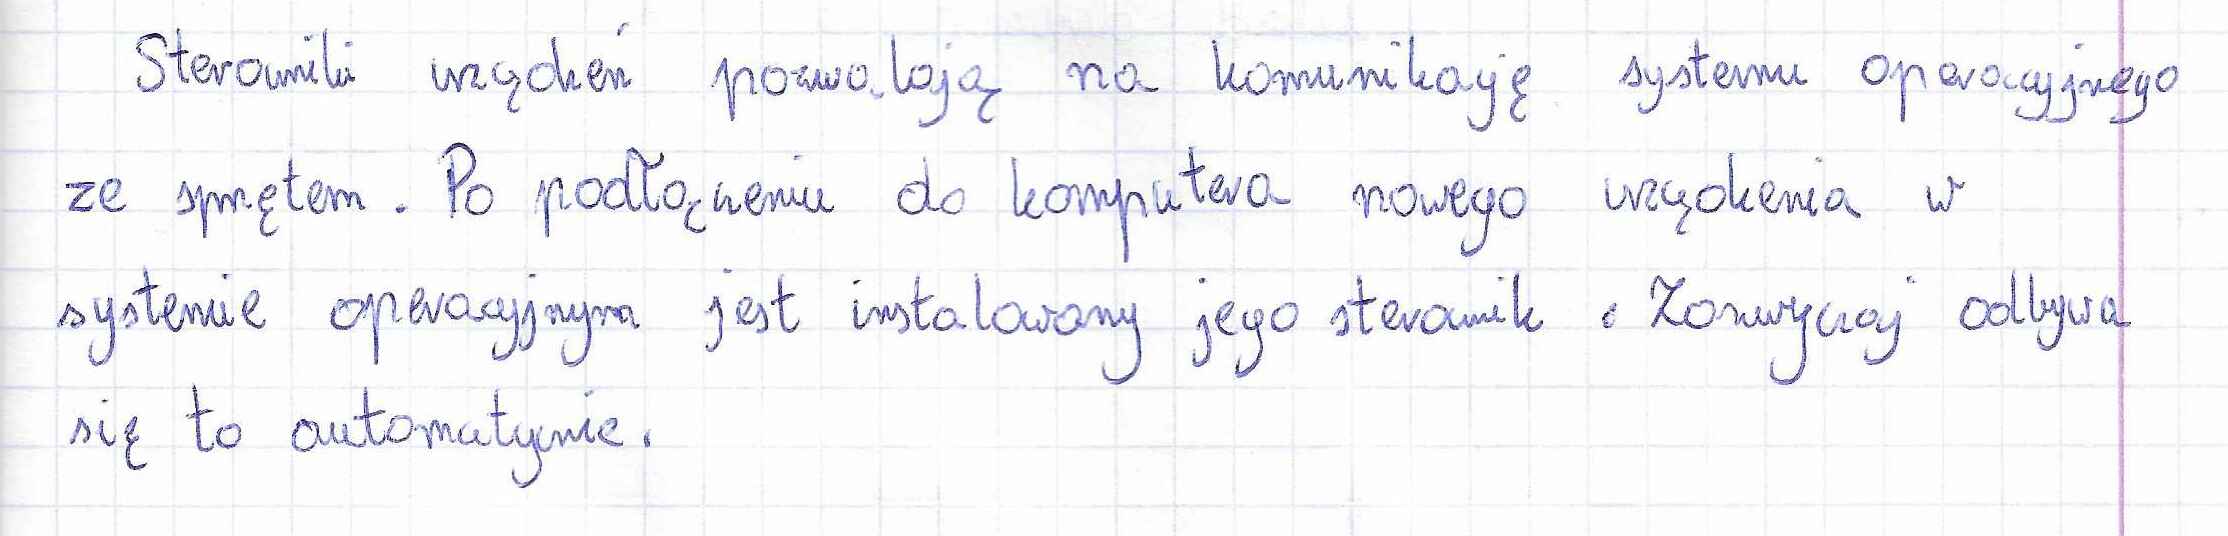 Sterowniki urządzeń pozwalają na komunikację systemu operacyjnego
ze sprzętem. Po podłączeniu do komputera nowego urządzenia w
systemie operacyjnym jest instalowany jego sterownik. Zazwyczaj odbywa
się to automatycznie.